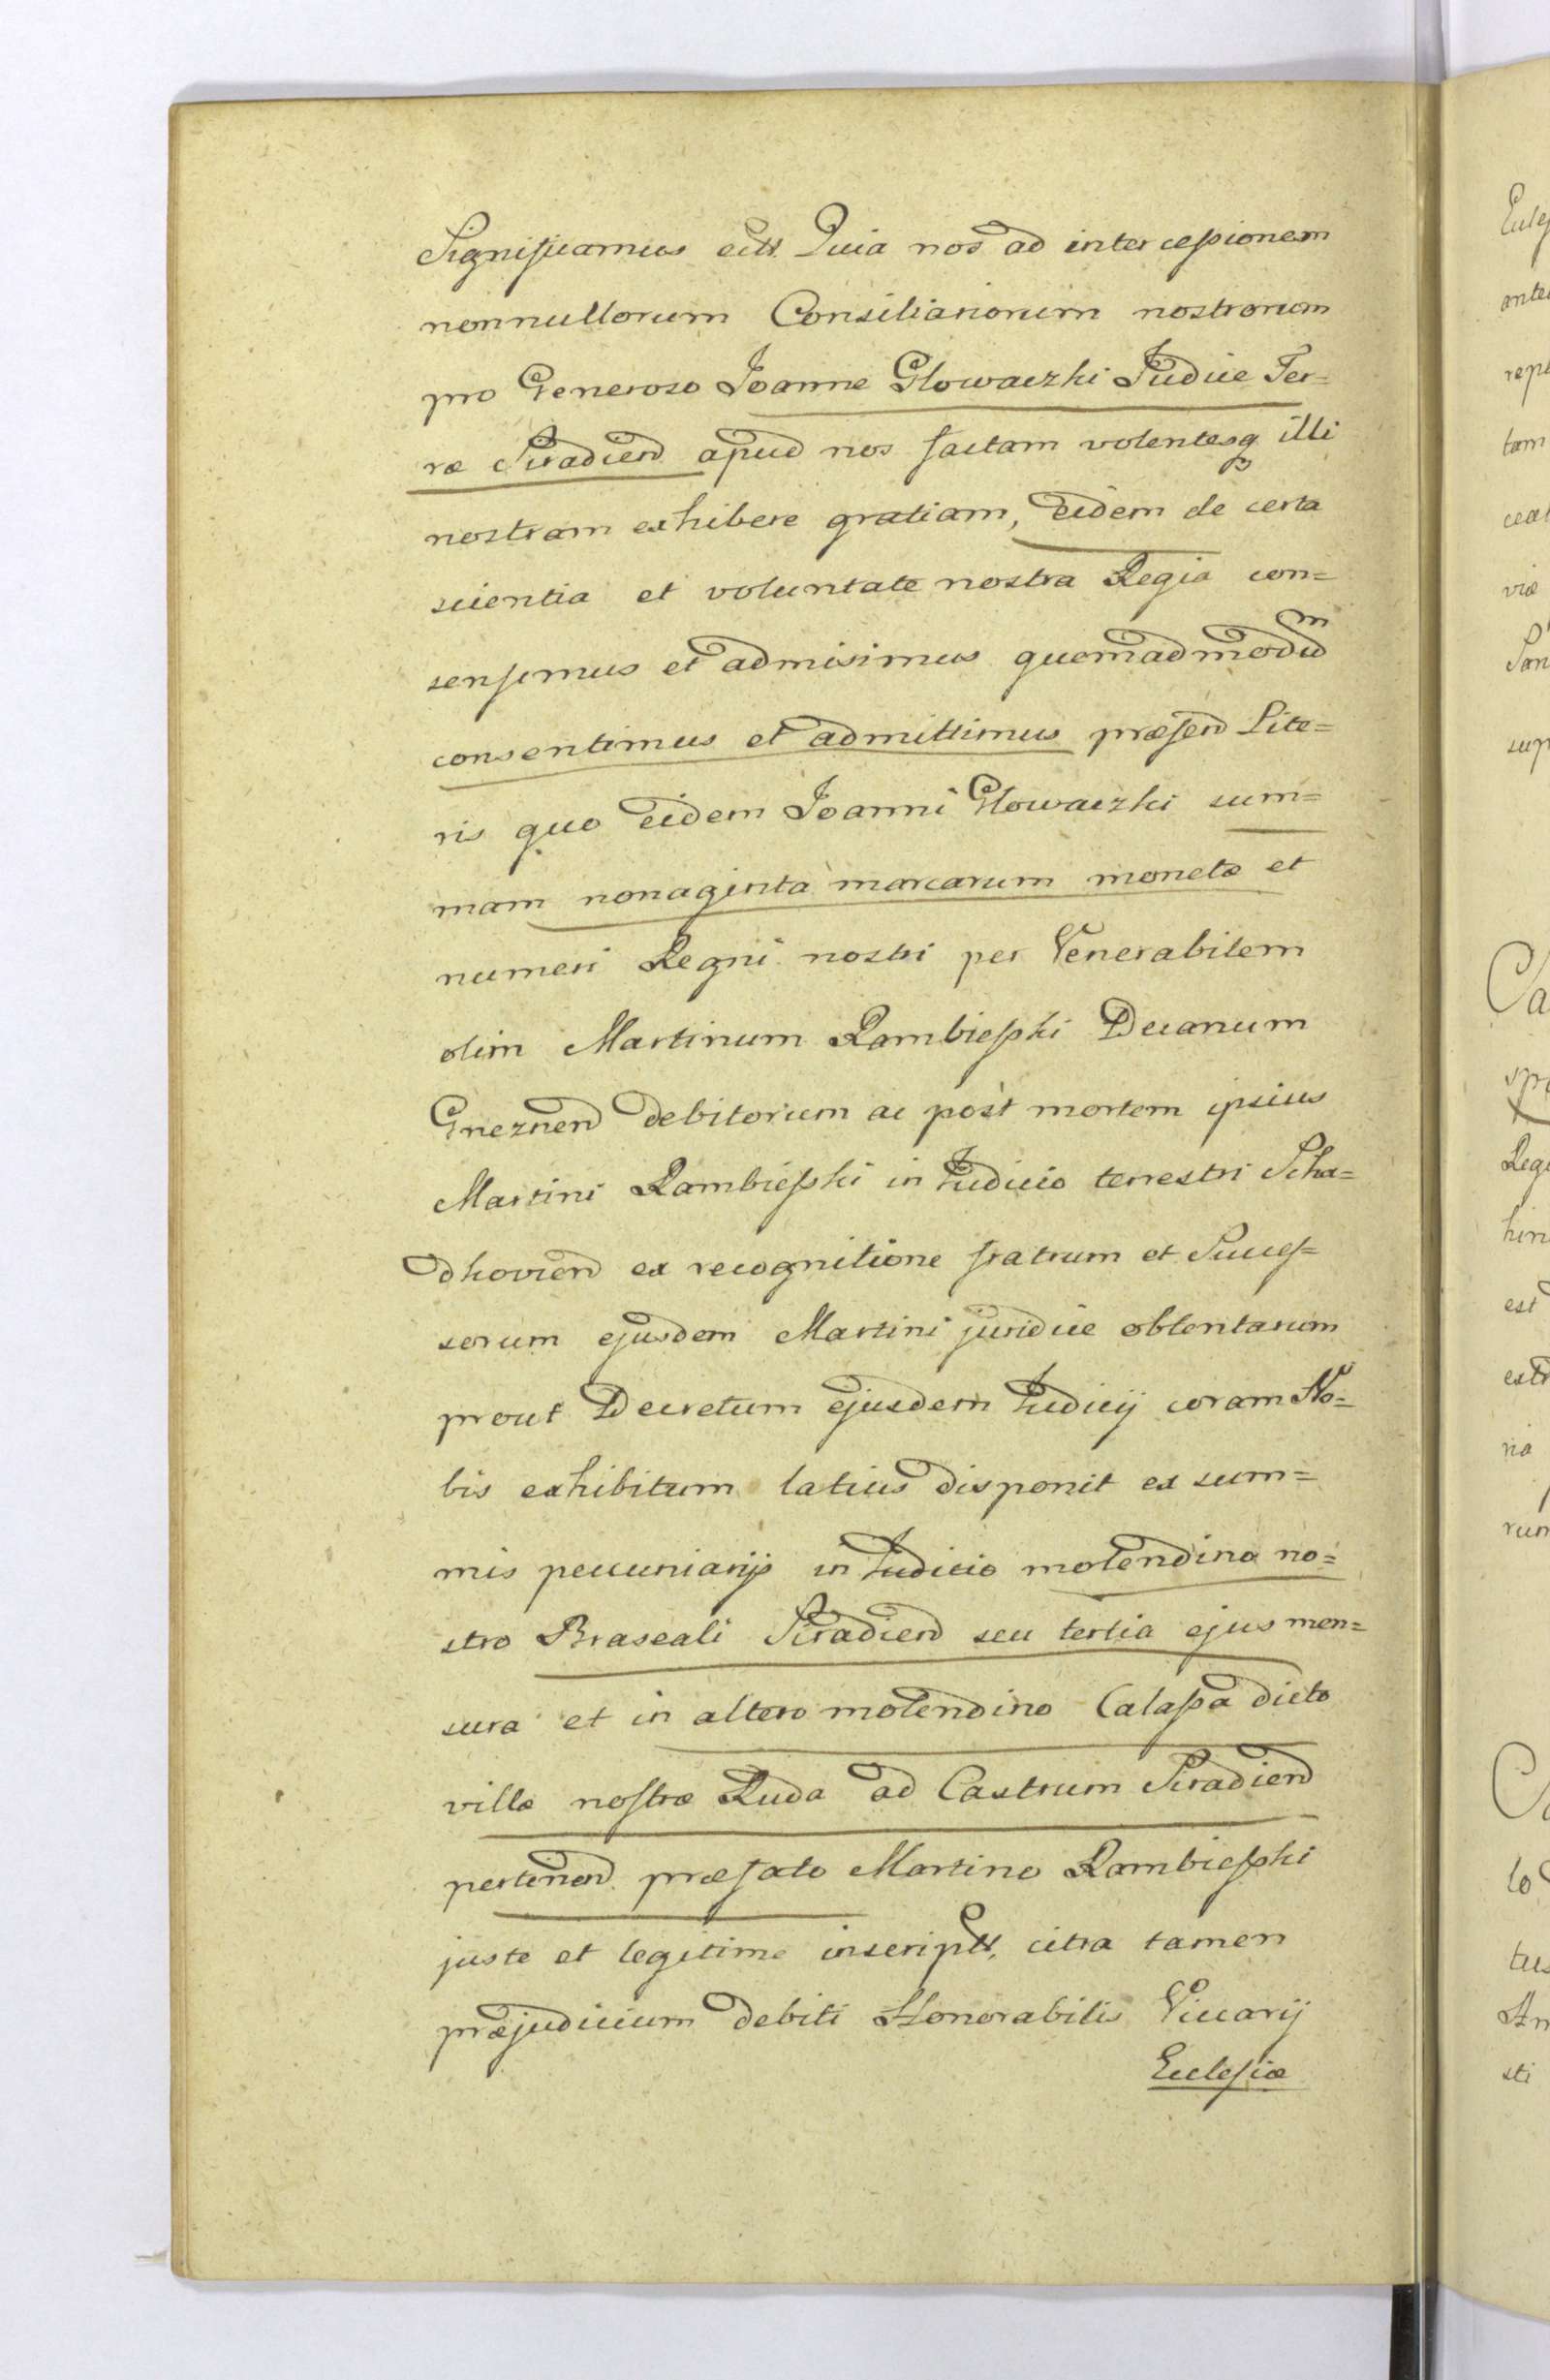 Significamus ectt. Quia nos ad intercessionem
nonnullorum Consiliariorum nostrorum
pro Generoso Joanne Glowaczki Judice Ter=
ræ Siradien apud nos factam volentesq illi
nostram exhibere gratiam, eidem de certa
scientia et voluntate nostra Regia con=
sensimus et admisimus quemadmodum
consentimus et admittimus præsen Lite=
ris quo eidem Joanni Glowaczki sum=
mam nonaginta marcarum monetæ et
numeri Regni nostri per Venerabilem
olim Martinum Rambieski Decanum
Gneznen debitorum ac post mortem ipsius
Martini Rambieski in Judicio terrestri Scha=
dkovien ex recognitione fratrum et Succes=
sorum ejusdem Martini juridice obtentarum
prout Decretum ejusdem Judicij coram No=
bis exhibitum latius disponit ex sum=
mis pecuniarijs in Judicio molendino no=
stro Braseali Siradien seu tertia ejus men=
sura et in altero molendino Calassa dicto
villæ nostræ Ruda ad Castrum Siradien
pertinen. præfato Martino Rambieski
juste et legitime inscriptt, citra tamen
præjudicium debiti Honorabilis Viccarij
Ecclesiæ